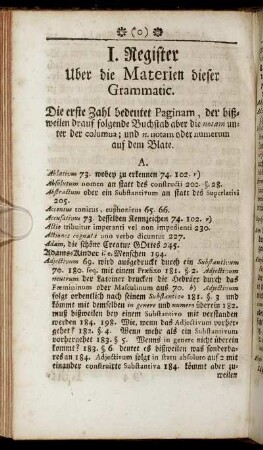 (0)
I. Register
Uber die Materien dieser
Grammatic.
Die erste Zahl bedeutet Paginam, der biß-
weilen drauf folgende Buchstab aber die notam un-
ter der columna; und n. notam oder numerum
auf dem Blate.
A.
Ablativum 73. wobey zu erkennen 74. 102. r)
Absolutum nomen an statt des constructi 202. §. 28.
Abstractum oder ein Substantivum an statt des Superlativi
205.
Accentus tonicus, euphonicus 65. 66.
Accusativus 73. desselben Kennzeichen 74. 102. r)
Actio tribuitur imperanti vel non impedienti 230.
Actiones cognatæ uno verbo dicuntur 227.
Adam, die schöne Creatur GOttes 245.
Adams-Kinder i. e. Menschen 194.
Adjectivum 69. wird ausgedruckt durch ein Substantivum
70. 180. seq. mit einem Præfixo 181. §. 2. Adjectivum
neutrum der Lateiner drucken die Hebräer durch das
Fœmininum oder Masculinum aus 70. b) Adjectivum
folgt ordentlich nach seinem Substantivo 181. §. 3 und
kömmt mit demselben in genere und numero überein 182.
muß bißweilen bey einem Substantivo mit verstanden
werden 184. 198. Wie, wenn das Adjectivum vorher-
gehet? 182. §. 4. Wenn mehr als ein Substantivum
vorhergehet 183. §. 5. Wenns in genere nicht überein
kommt? 183. §. 6 deutet es bißweilen was sonderba-
res an 184. Adjectivum folgt in statu absoluto auf 2 mit
einander construirte Substantiva 184. kömmt aber zu-
weilen